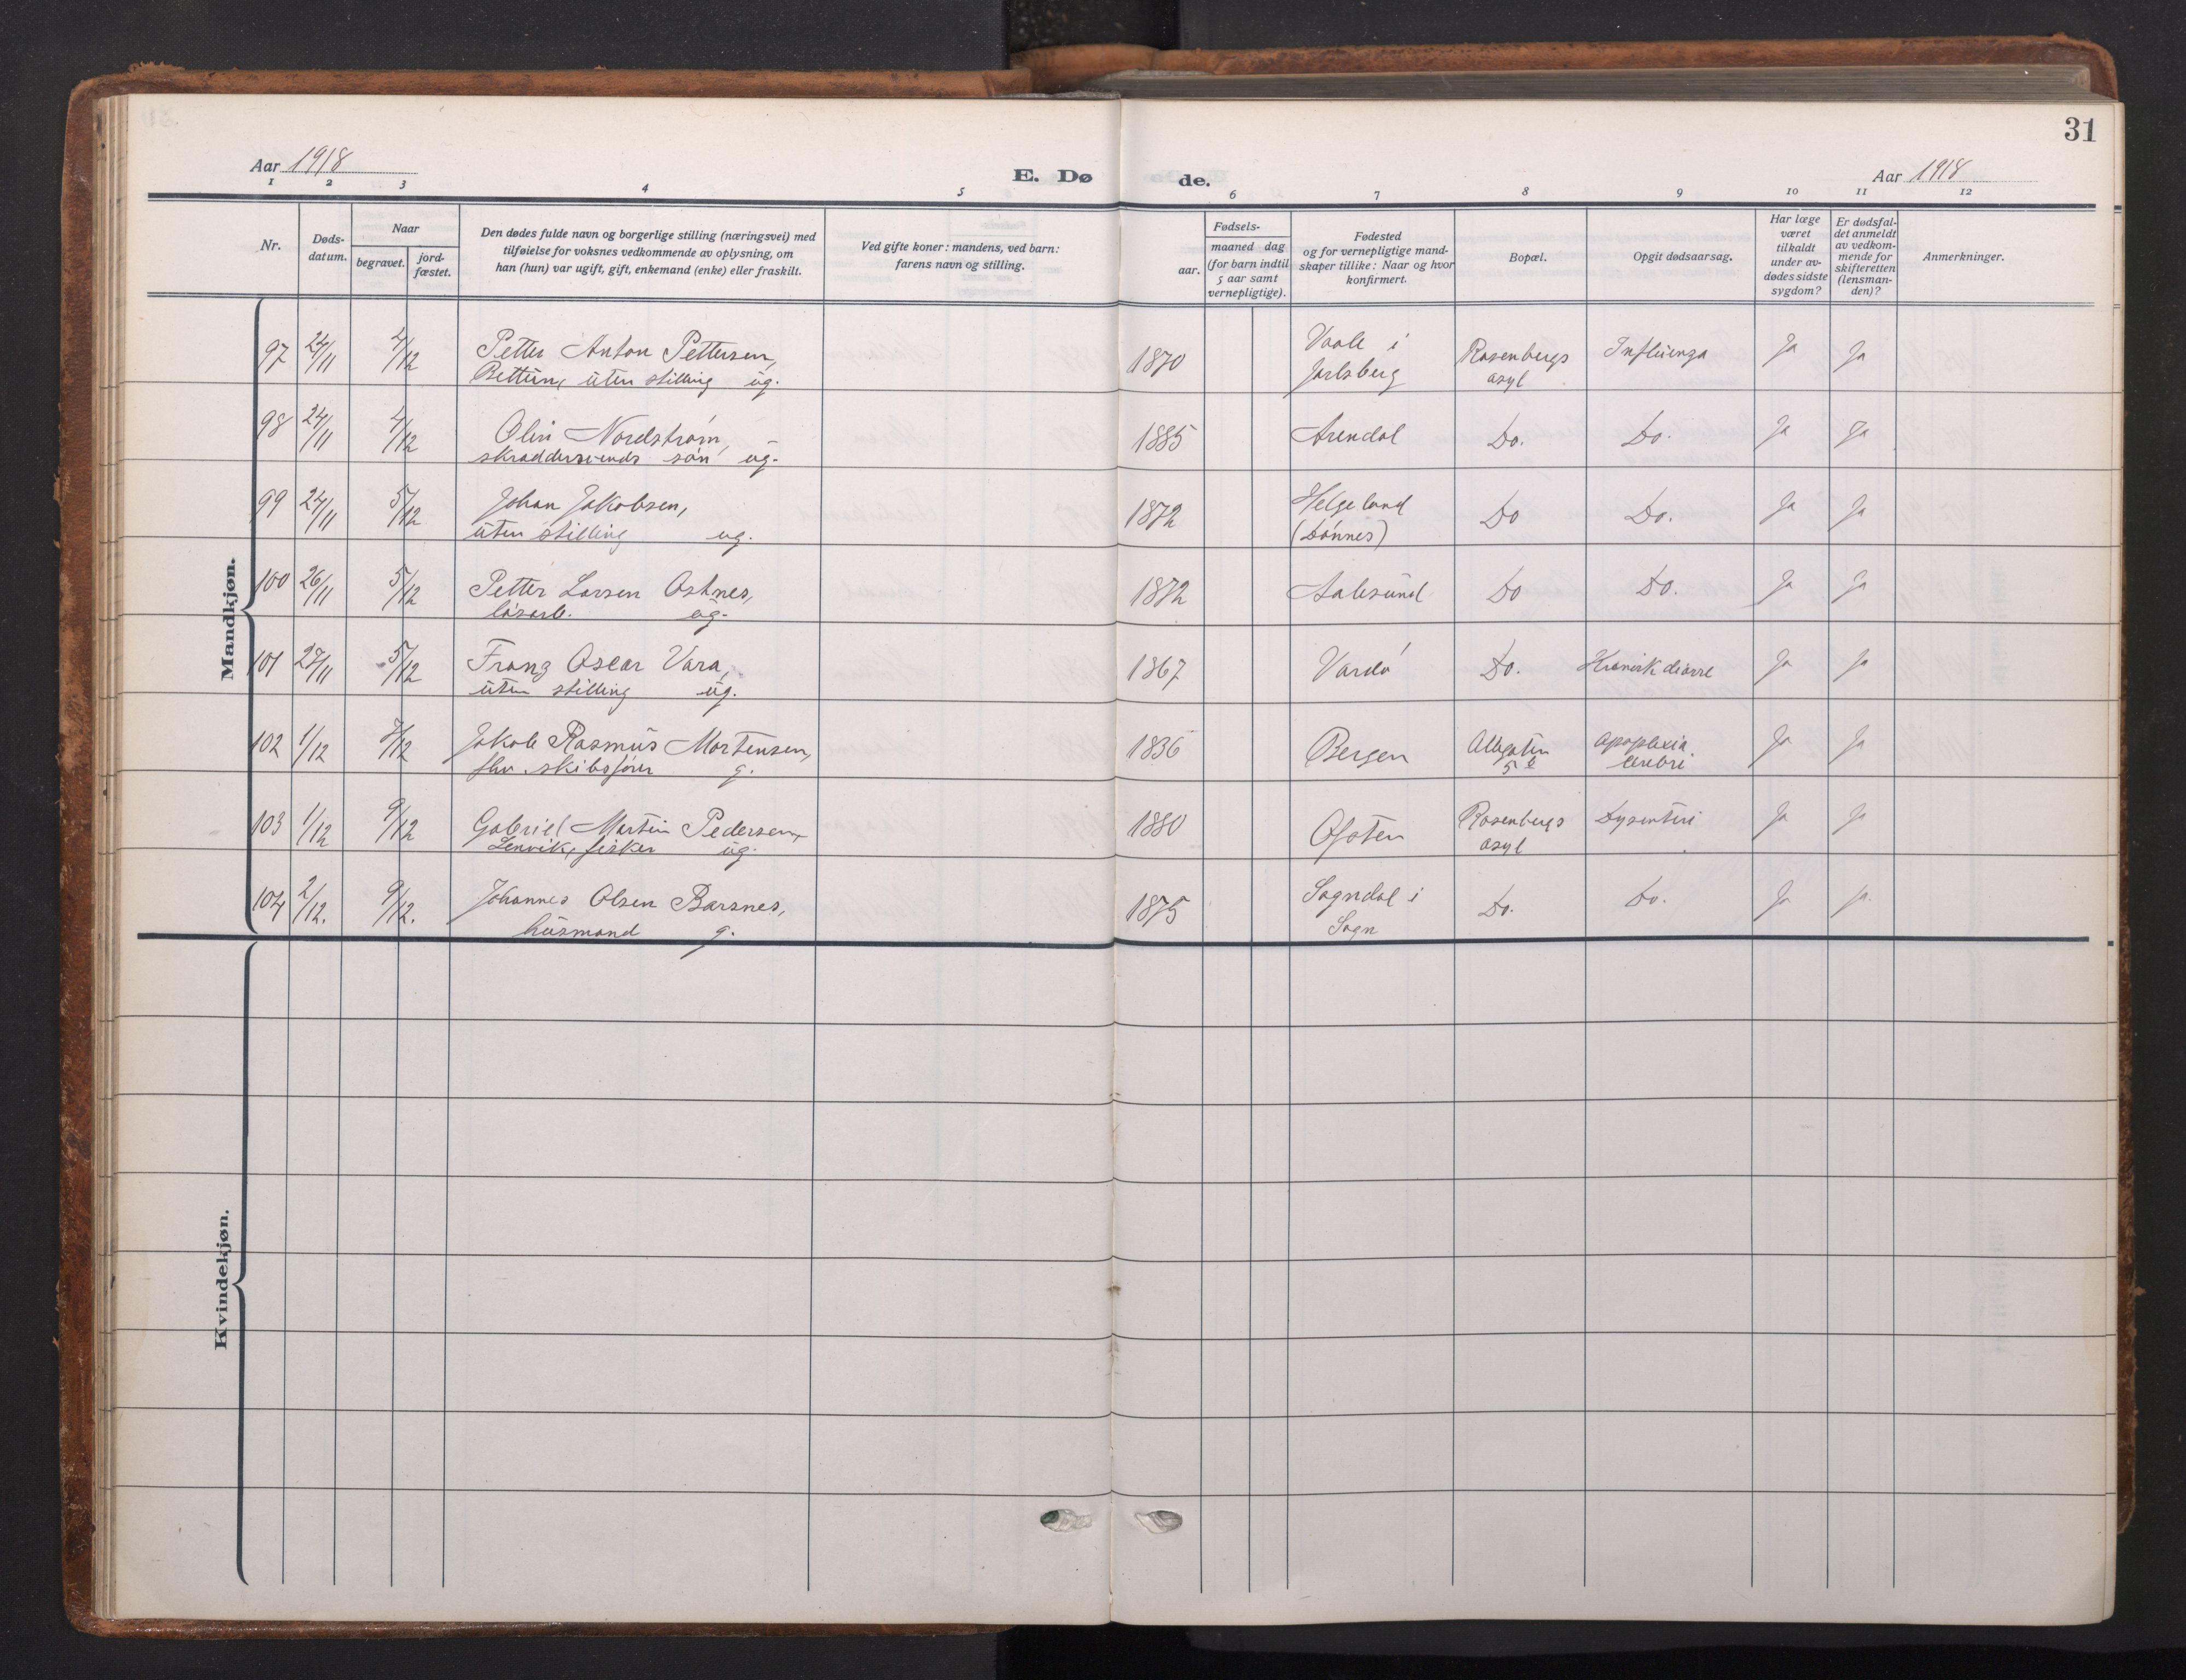 31
Aar 1918
E. Dø de.
Aar 1918
1 2 3 4 5 6 7 8 9 10 11 12
Nr.
Døds-
datum.
Naar
begravet.
jord-
fæstet.
Den dødes fulde navn og borgerlige stilling (næringsvei) med
tilføielse for voksnes vedkommende av oplysning, om
han (hun) var ugift, gift, enkemand (enke) eller fraskilt.
Ved gifte koner: mandens, ved barn:
farens navn og stilling.
Fødsels-
aar.
maaned dag
(for barn indtil
5 aar samt
vernepligtige).
Fødested
og for vernepligtige mand-
skaper tillike: Naar og hvor
konfirmert.
Bopæl.
Opgit dødsaarsag.
Har læge
været
tilkaldt
under av-
dødes sidste
sygdom?
Er dødsfal-
det anmeldt
av vedkom-
mende for
skifteretten
(lensman-
den)?
Anmerkninger.
Mandkjøn.
97 24/11 4/12 Petter Anton Pettersen, 1870 Vaale i Rosenbergs Influenza Ja Ja
uten stilling ug. Jarlsberg asyl
98 24/11 4/12 Olin Nordstrøm, 1885 Arendal Do. Do. Ja Ja
skraddersvends søn ug.
99 24/11 5/12 Johan Jakobsen, 1872 Helgeland Do Do. Ja Ja
uten stilling ug. (Dønnes)
100 26/11 5/12 Petter Larsen Ostnes, 1872 Aalesund Do Do. Ja Ja
løsarb. ug.
101 27/11 5/12 Franz Oscar Vara, 1867 Vardø Do. Kronisk diarre Ja Ja
uten stilling ug.
102 1/12 7/12 Jakob Rasmus Mortensen, 1836 Bergen Allegaten Apoplexia Ja Ja
fhv. skibsfører g. 5 b cerebri
103 1/12 9/12 Gabriel Martin Pedersen, 1880 Ofoten Rosenbergs Dysenteri Ja Ja
Lenvik, fisker ug. asyl
104 2/12. 9/12. Johannes Olsen Barsnes, 1875 Sogndal i Do. Do. Ja Ja
husmand g. Sogn
Kvindekjøn.